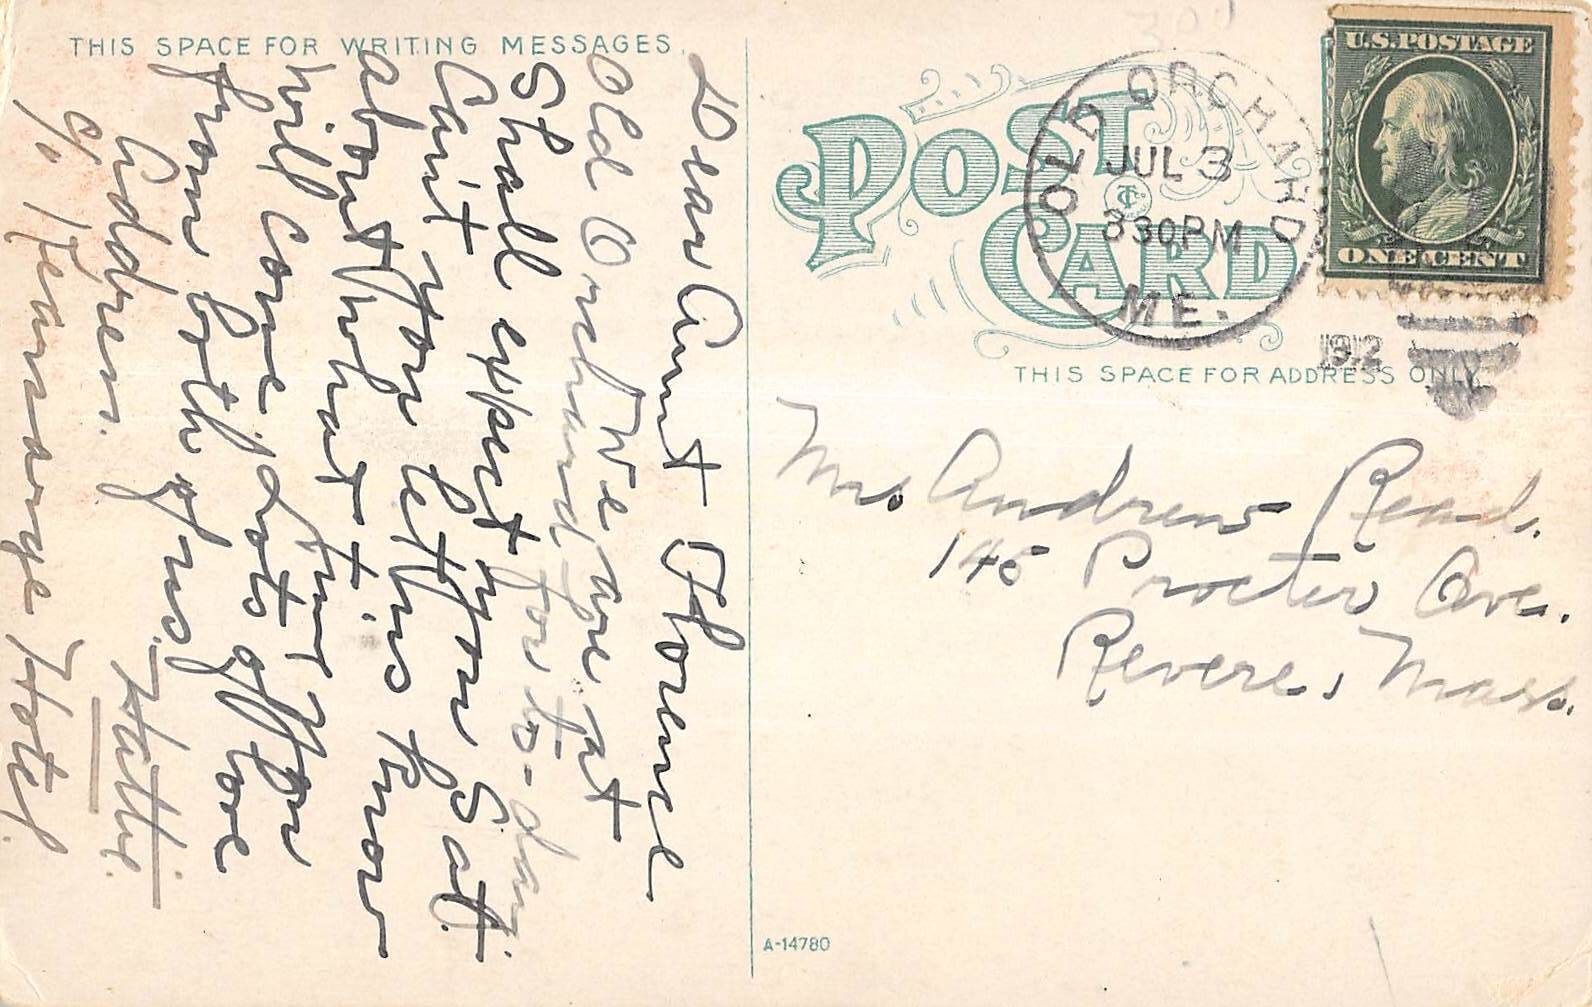 THIS SPACE FOR WRITING MESSAGES.
Dear Aunt Florence
We are at
Old Orchard for to-day.
Shall expect you Sat.
Can't you let us know
about what time you
will come. Lots of love
from both of us.
Hattie.
Address.
c/o Kearsarge Hotel.
POST CARD
OLD ORCHARD
JUL 3
330PM
ME.
1912
U.S. POSTAGE
ONE CENT
THIS SPACE FOR ADDRESS ONLY.
Mrs Andrew Read.
146 Proctor Ave.
Revere, Mass.
A-14780